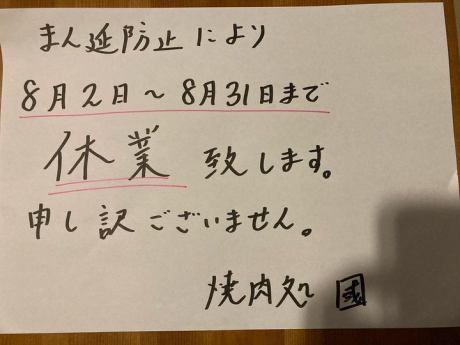 まん延防止により
8月2日～8月31日まで
休業致します。
申し訳ございません。
焼肉処 國